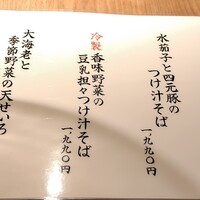 水茄子と四元豚の
つけ汁そば
一、九九〇円
冷製 香味野菜の
豆乳担々つけ汁そば
一、九九〇円
大海老と
季節野菜の天せいろ